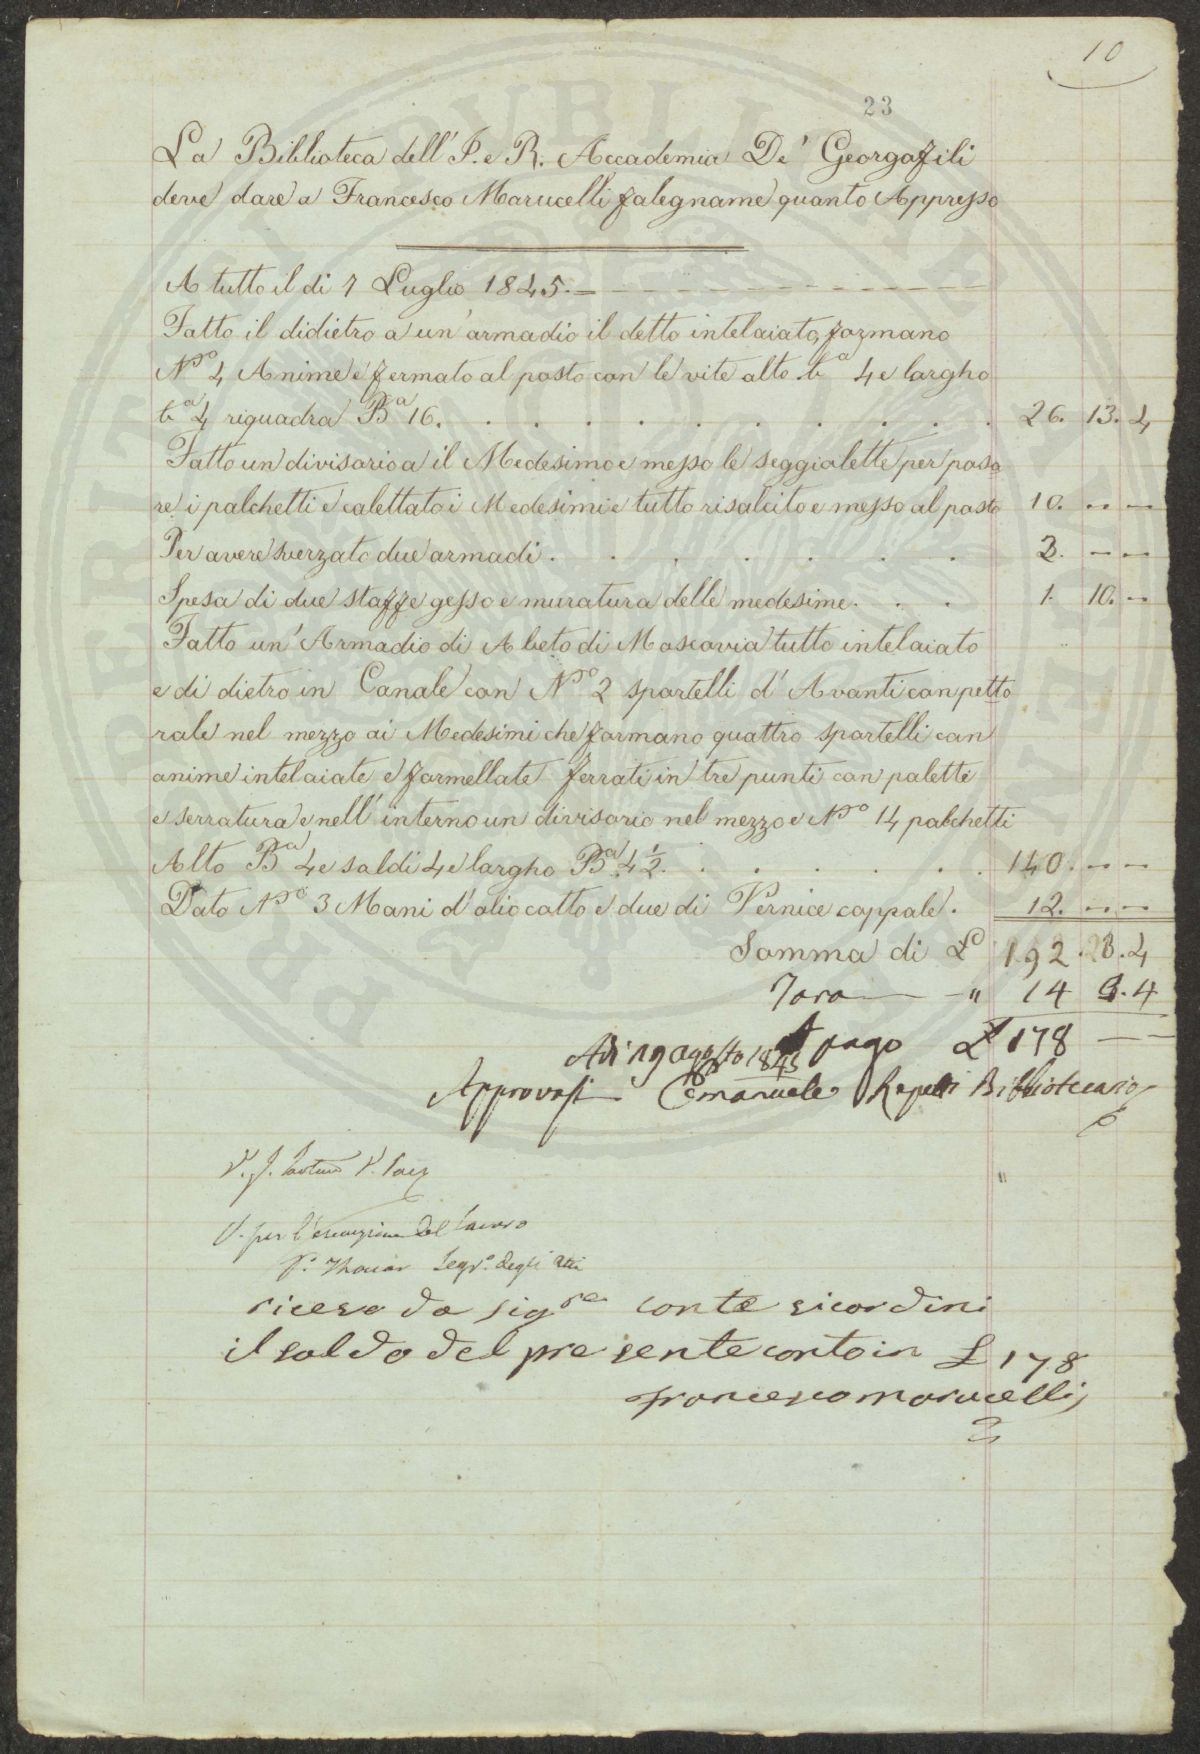 10
23
La Biblioteca dell' I. e R. Accademia De' Georgofili
deve dare a Francesco Marucelli falegname quanto Appresso
A tutto il di 7 Luglio 1845. —
Fatto il didietro a un' armadio il detto intelaiato, formano
N.ro 4 Anime e fermato al posto con le vite alto b.a 4 e largho
b.a 4 riquadra B.a 16. . . . . . . . . . . 26. 13. 4
Fatto un divisorio a il Medesimo e messo le seggiolette per posa
re i palchetti e calettato i Medesimi e tutto risalcito e messo al posto 10. -- --
Per avere sverzato due armadi . . . . . . . 2. -- --
Spesa di due staffe gesso e muratura delle medesime. . . . 1. 10. --
Fatto un' Armadio di Abeto di Moscovia tutto intelaiato
e di dietro in Canale con N.ro 2 sportelli d' Avanti con petto
rale nel mezzo ai Medesimi che formano quattro sportelli con
anime intelaiate e formellate ferrati in tre punti con palette
e serratura e nell' interno un divisorio nel mezzo e N.ro 14 palchetti
Alto B.a 4 e soldi 4 e largho B.a 4 ½. . . . . . . 140. -- --
Dato N.ro 3 Mani d' olio cotto e due di Vernice coppale. 12. -- --
Somma di £ 192. 3. 4
Tara — " 14 3. 4
pago £ 178 — —
Adi 19 agosto 1845
Approvasi Emanuele Repetti Bibliotecario
V. per l'esecuzione del lavoro
P. Thouar Segr.o degli atti
riceso da sig.re conte ricordini
il saldo del presente conto in £ 178
francesco marucelli